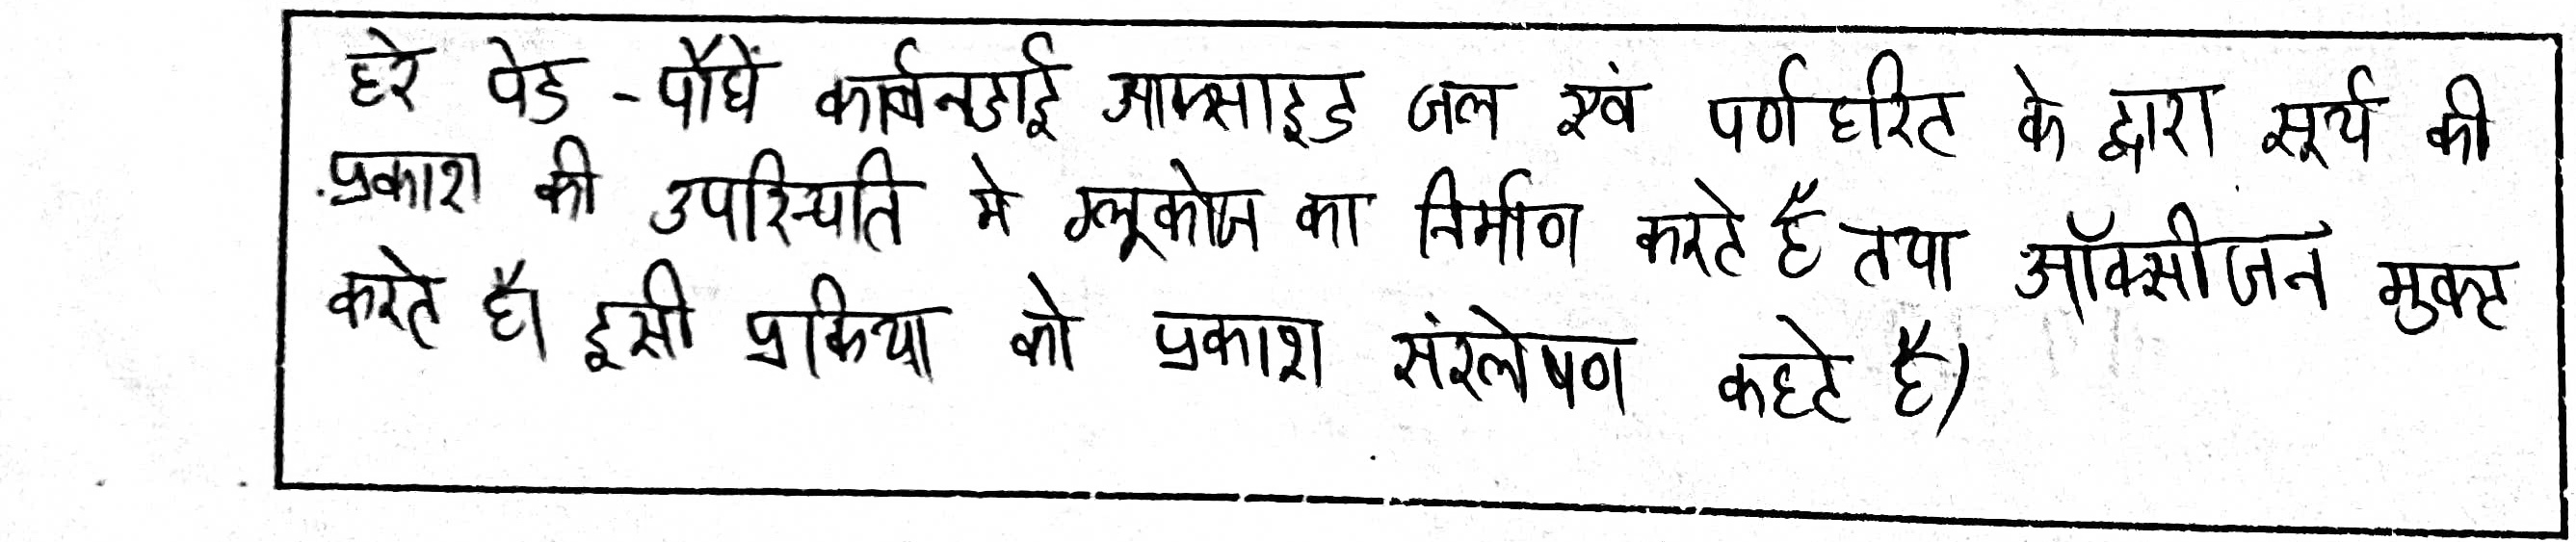 हरे पेड - पौधें कार्बनडाई आक्साइड जल एवं पर्ण हरित के द्वारा सूर्य की
प्रकाश की उपस्थिति मे ग्लूकोज का निर्माण करते है तथा ऑक्सीजन मुक्त
करते है। इसी प्रकिया को प्रकाश संश्लेषण कहते है।